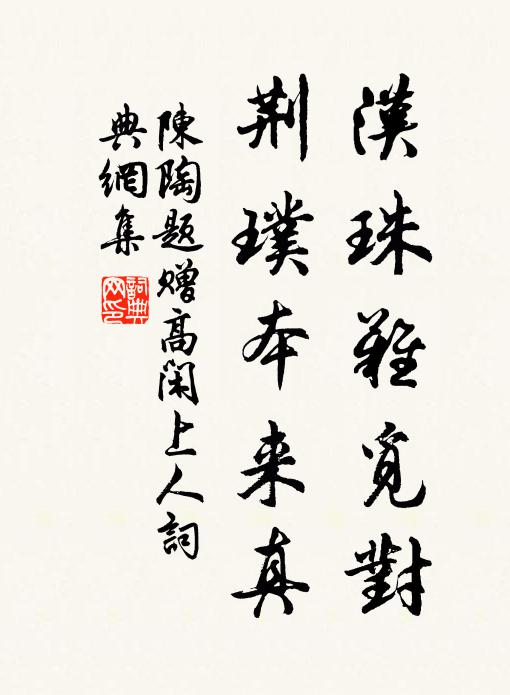 漢珠難覓對
荆璞本来真
陳陶題贈高閑上人詞
典網集
詞典
网印